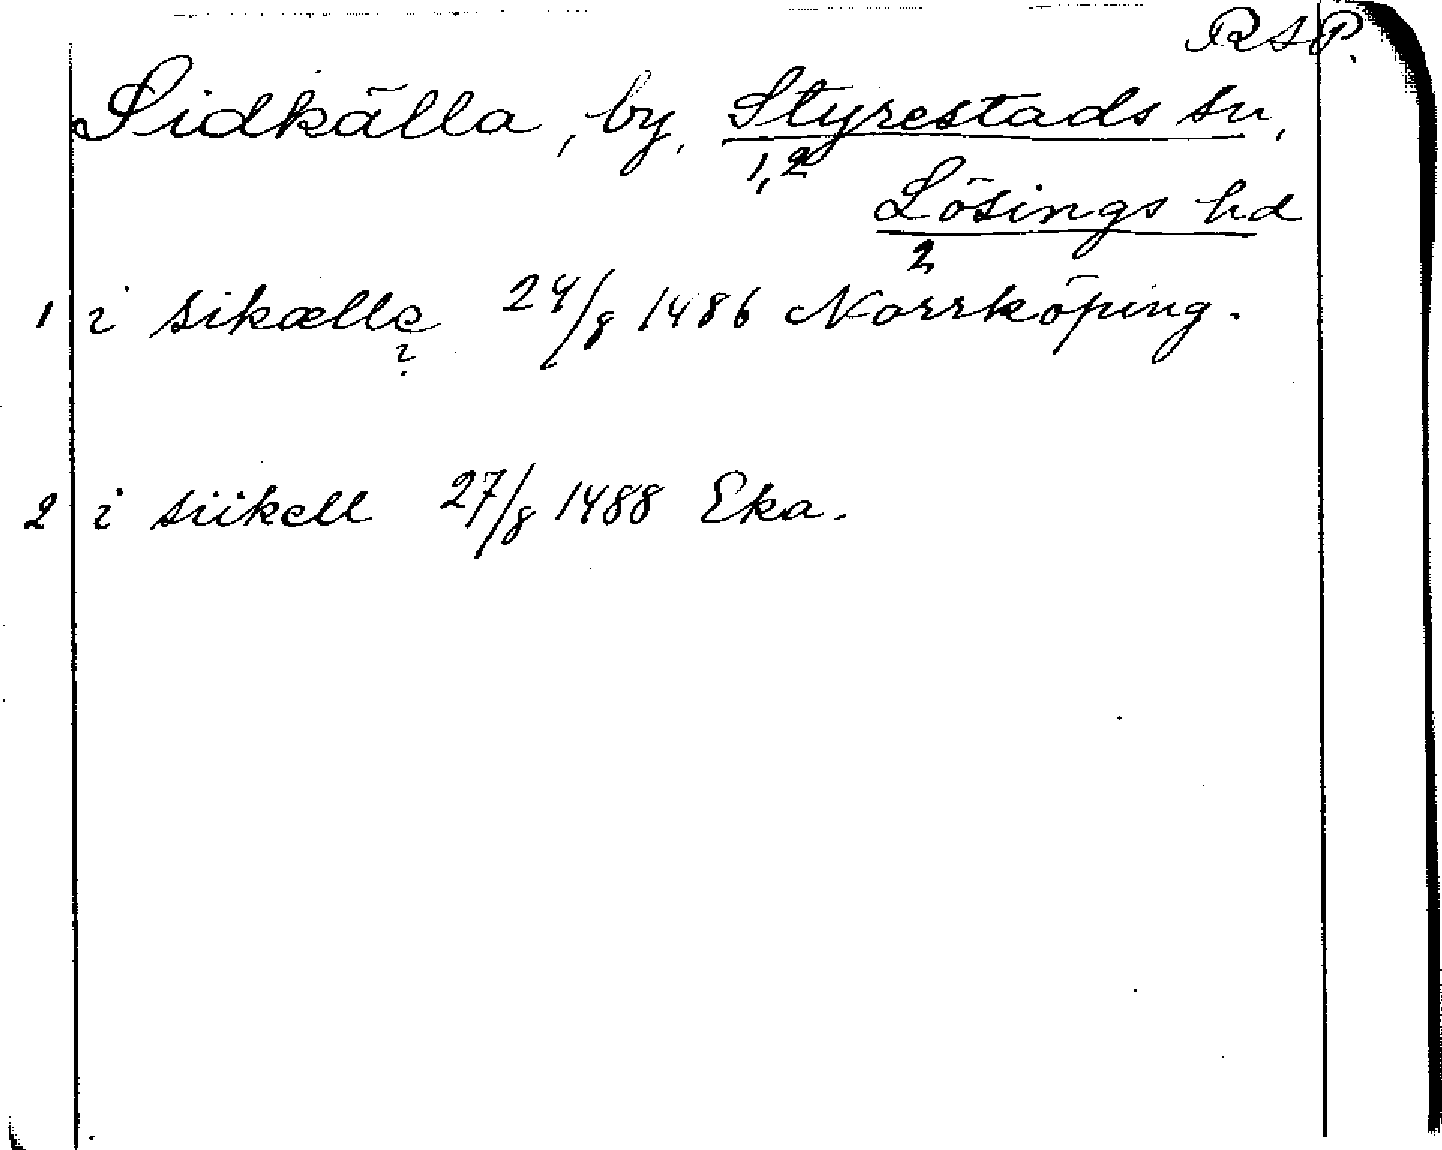 RAP.
Sidkälla, by, Styrestads sn,
1,2
Lösings hd
2
1 i sikælle 24/8 1486 Norrköping.
?
2 i siikell 27/8 1488 Eka.